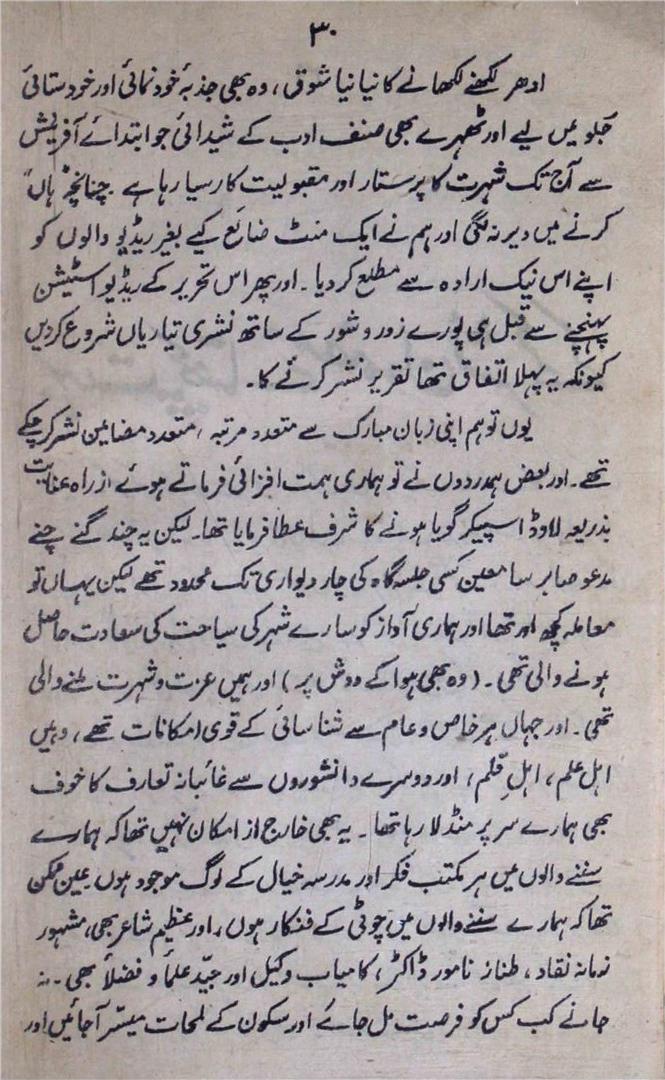 ۳۰
ادھر لکھنے لکھانے کا نیا نیا شوق، وہ بھی جذبۂ خود نمائی اور خود ستائی
جلو میں لیے اور ٹھہرے بھی صنف ادب کے شیدائی جو ابتدائے آفرینش
سے آج تک شہرت کا پرستار اور مقبولیت کا رسیا رہا ہے۔ چنانچہ "ہاں"
کرنے میں دیر نہ لگی اور ہم نے ایک منٹ ضائع کیے بغیر ریڈیو والوں کو
اپنے اس نیک ارادہ سے مطلع کر دیا۔ اور پھر اس تحریر کے ریڈیو اسٹیشن
پہنچنے سے قبل ہی پورے زور و شور کے ساتھ نشری تیاریاں شروع کر دیں
کیونکہ یہ پہلا اتفاق تھا تقریر نشر کرنے کا۔
یوں تو ہم اپنی زبان مبارک سے متعدد مرتبہ، متعدد مضامین نشر کر چکے
تھے۔ اور بعض ہمدردوں نے تو ہماری ہمت افزائی فرماتے ہوئے از راہ عنایت
بذریعہ لاوڈ اسپیکر گویا ہونے کا شرف عطا فرمایا تھا۔ لیکن یہ چند گنے چنے
مدعو صابر سامعین کسی جلسہ گاہ کی چار دیواری تک محدود تھے لیکن یہاں تو
معاملہ کچھ اور تھا اور ہماری آواز کو سارے شہر کی سیاحت کی سعادت حاصل
ہونے والی تھی۔ (وہ بھی ہوا کے دوش پر) اور ہمیں عزت و شہرت ملنے والی
تھی۔ اور جہاں ہر خاص و عام سے شناسائی کے قوی امکانات تھے، وہیں
اہل علم، اہلِ قلم، اور دوسرے دانشوروں سے غائبانہ تعارف کا خوف
بھی ہمارے سر پر منڈلا رہا تھا۔ یہ بھی خارج از امکان نہیں تھا کہ ہمارے
سننے والوں میں ہر مکتب فکر اور مدرسہ خیال کے لوگ موجود ہوں۔ عین ممکن
تھا کہ ہمارے سننے والوں میں چوٹی کے فنکار ہوں، اور عظیم شاعر بھی، مشہور
زمانہ نقاد، طناز نامور ڈاکٹر، کامیاب وکیل اور جیّد علمأ و فضلأ بھی۔ نہ
جانے کب کس کو فرصت مل جائے اور سکون کے لمحات میسّر آ جائیں اور